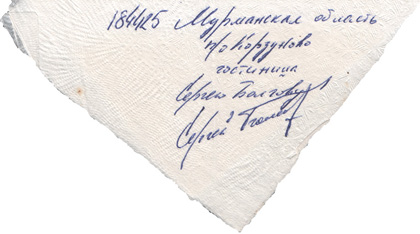 184425 Мурманская область
п/о Корзуново
гостиница
Сергей
Сергей